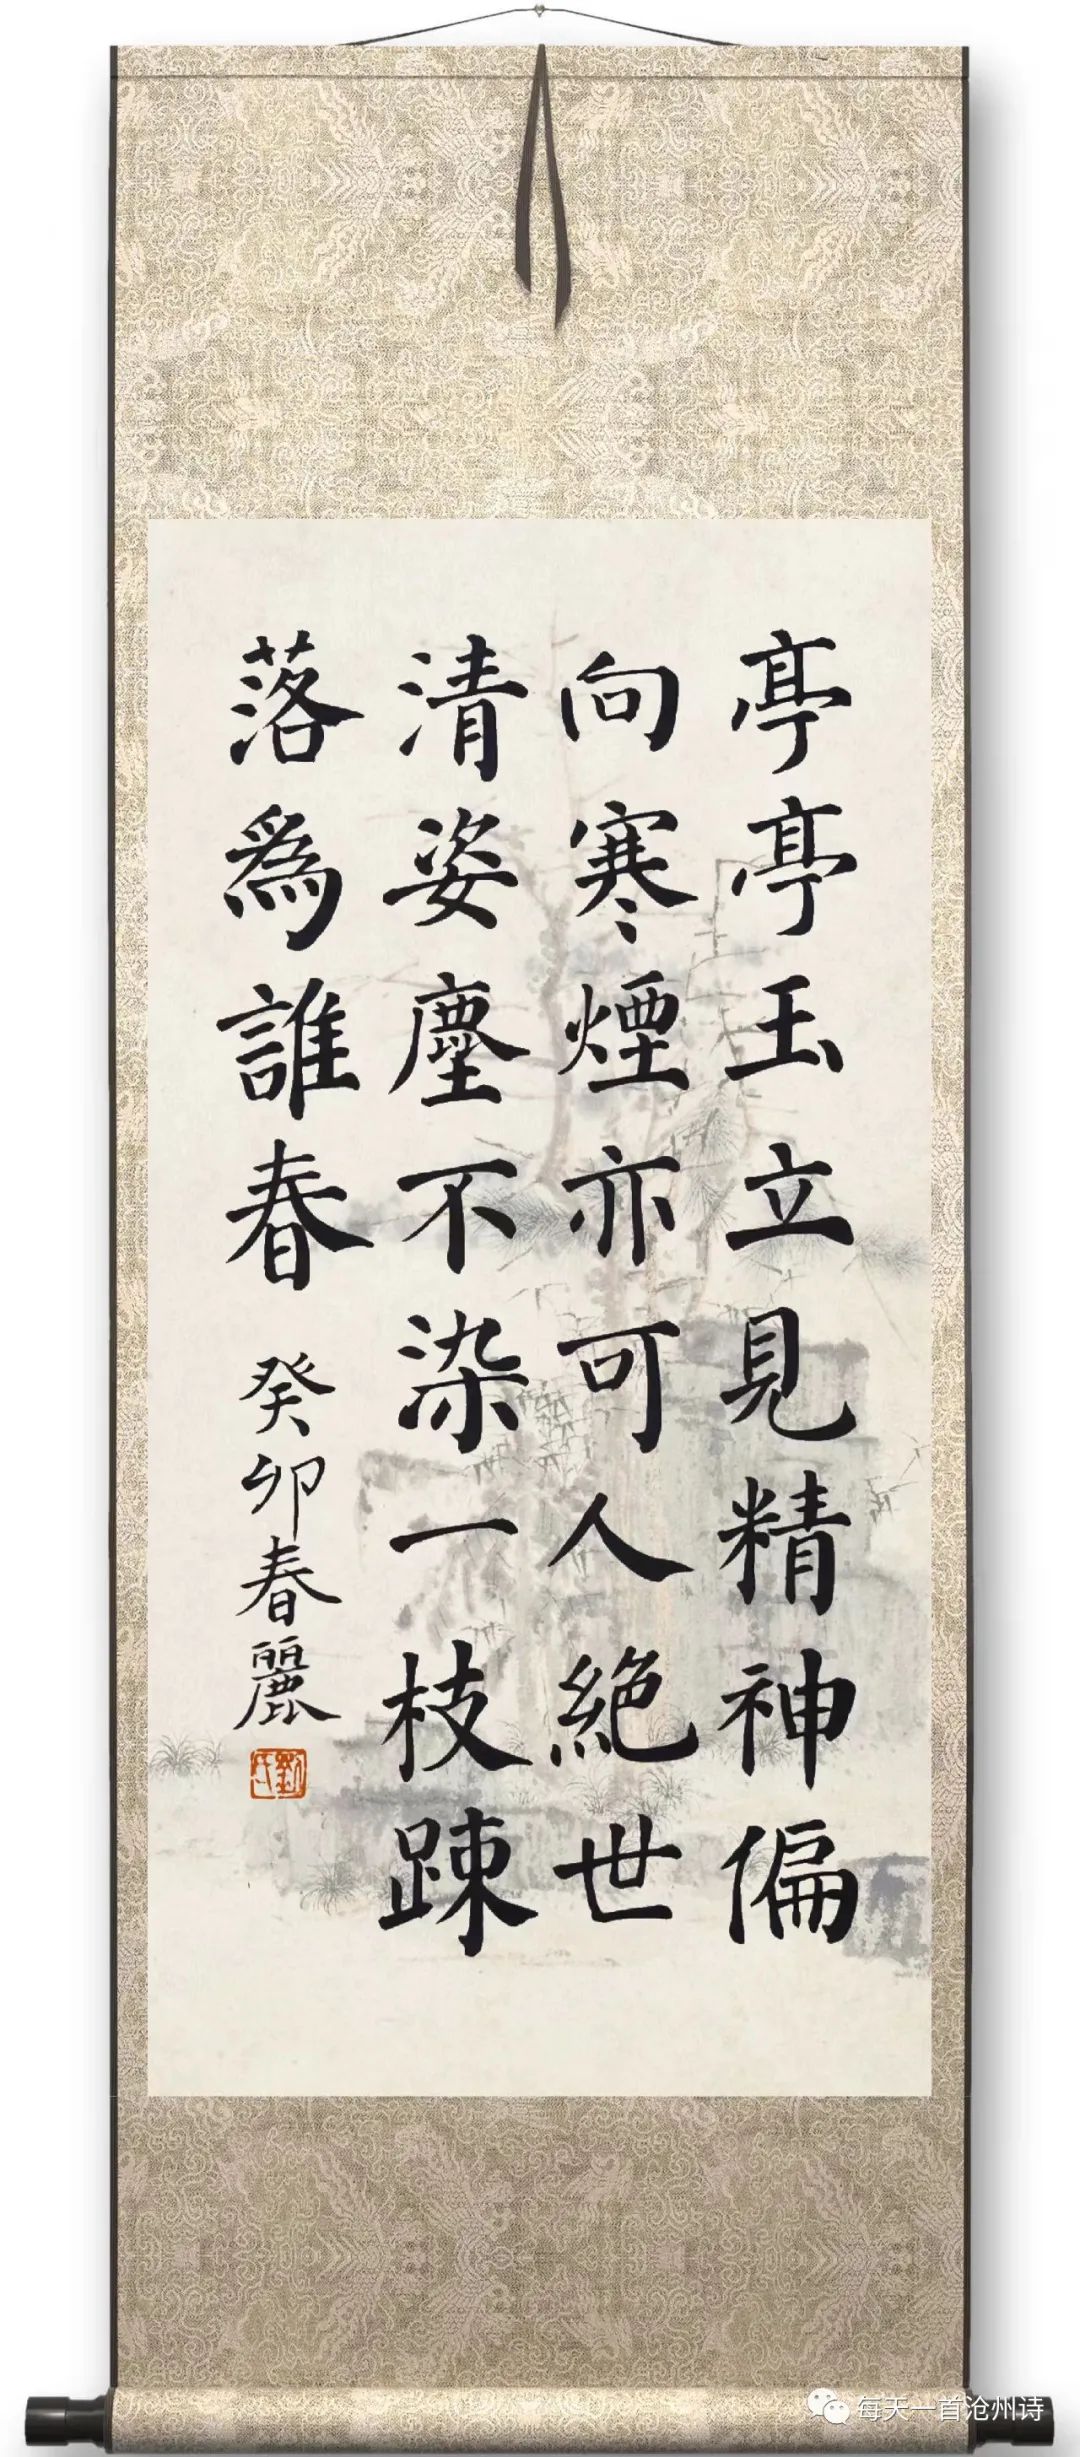 亭亭玉立見精神偏
向寒煙亦可人絕世
清姿塵不染一枝踈
落為誰春
癸卯春麗
劉氏
每天一首沧州诗